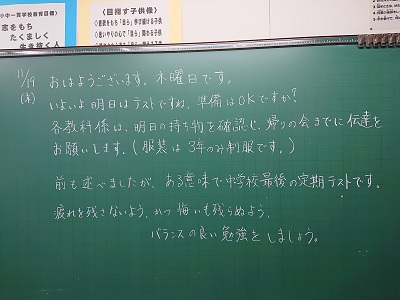 小中一貫学校教育目標】
志をもち
たくましく
生き抜く人
《目指す子供像》
11/19
(木)
おはようございます。木曜日です。
いよいよ明日はテストですね。準備はOKですか?
各教科係は、明日の持ち物を確認し、帰りの会までに伝達を
お願いします。(服装は3年のみ制服です。)
前も述べましたが、ある意味で中学校最後の定期テストです。
疲れを残さないよう、かつ悔いも残らぬよう、
バランスの良い勉強をしましょう。